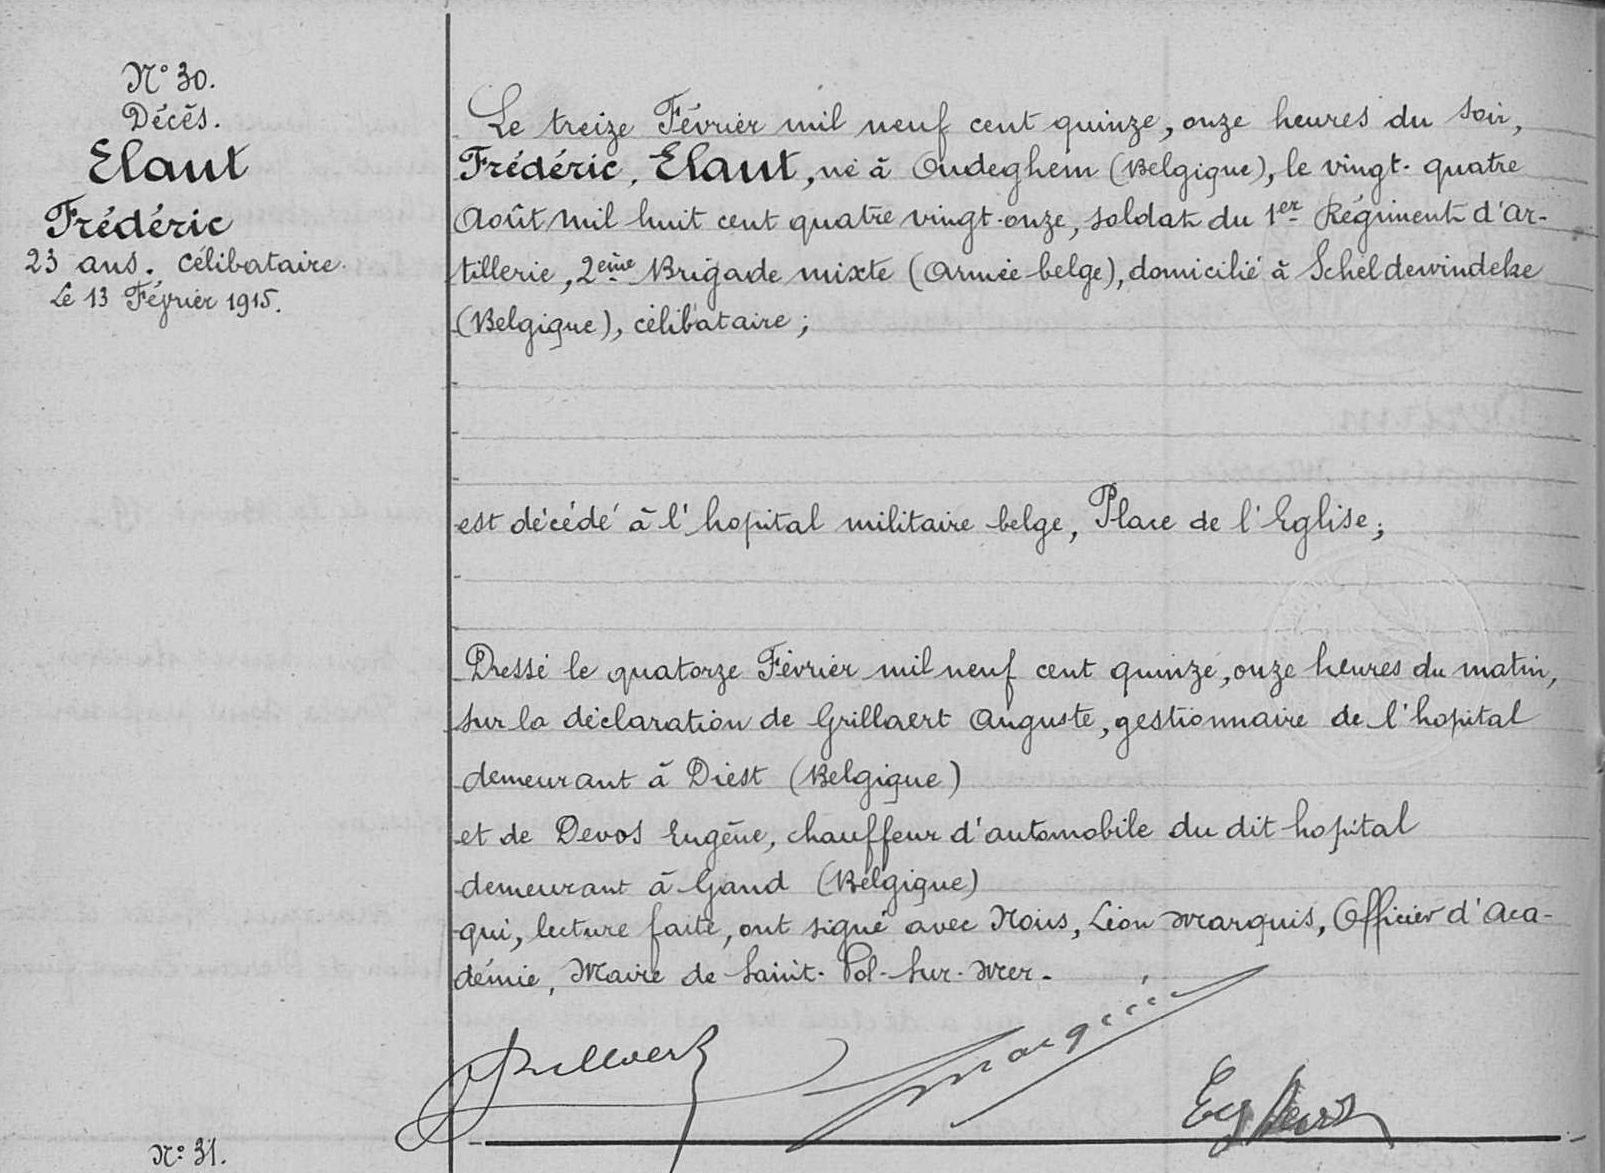 N° 30.
Décès.
Elaut
Frédéric
23 ans. célibataire.
Le 13 Février 1915.
Le treize Février mil neuf cent quinze, onze heures du soir,
Frédéric, Elaut, né à Oudeghem (Belgique), le vingt-quatre
Août mil huit cent quatre vingt-onze, soldat du 1er Régiment d'Ar-
tillerie, 2eme Brigade mixte (Armée belge), domicilié à Scheldewindeke
(Belgique), célibataire;
est décédé à l'hopital militaire belge, Place de l'Eglise;
Dressé le quatorze Février mil neuf cent quinze, onze heures du matin,
sur la déclaration de Grillaert Auguste, gestionnaire de l'hopital
demeurant à Diest (Belgique)
et de Devos Eugène, chauffeur d'automobile du dit hopital
demeurant à Gand (Belgique)
qui, lecture faite, ont signé avec Nous, Léon Marquis, Officier d'Aca-
démie, Maire de Saint-Pol-sur-Mer.
N° 31.